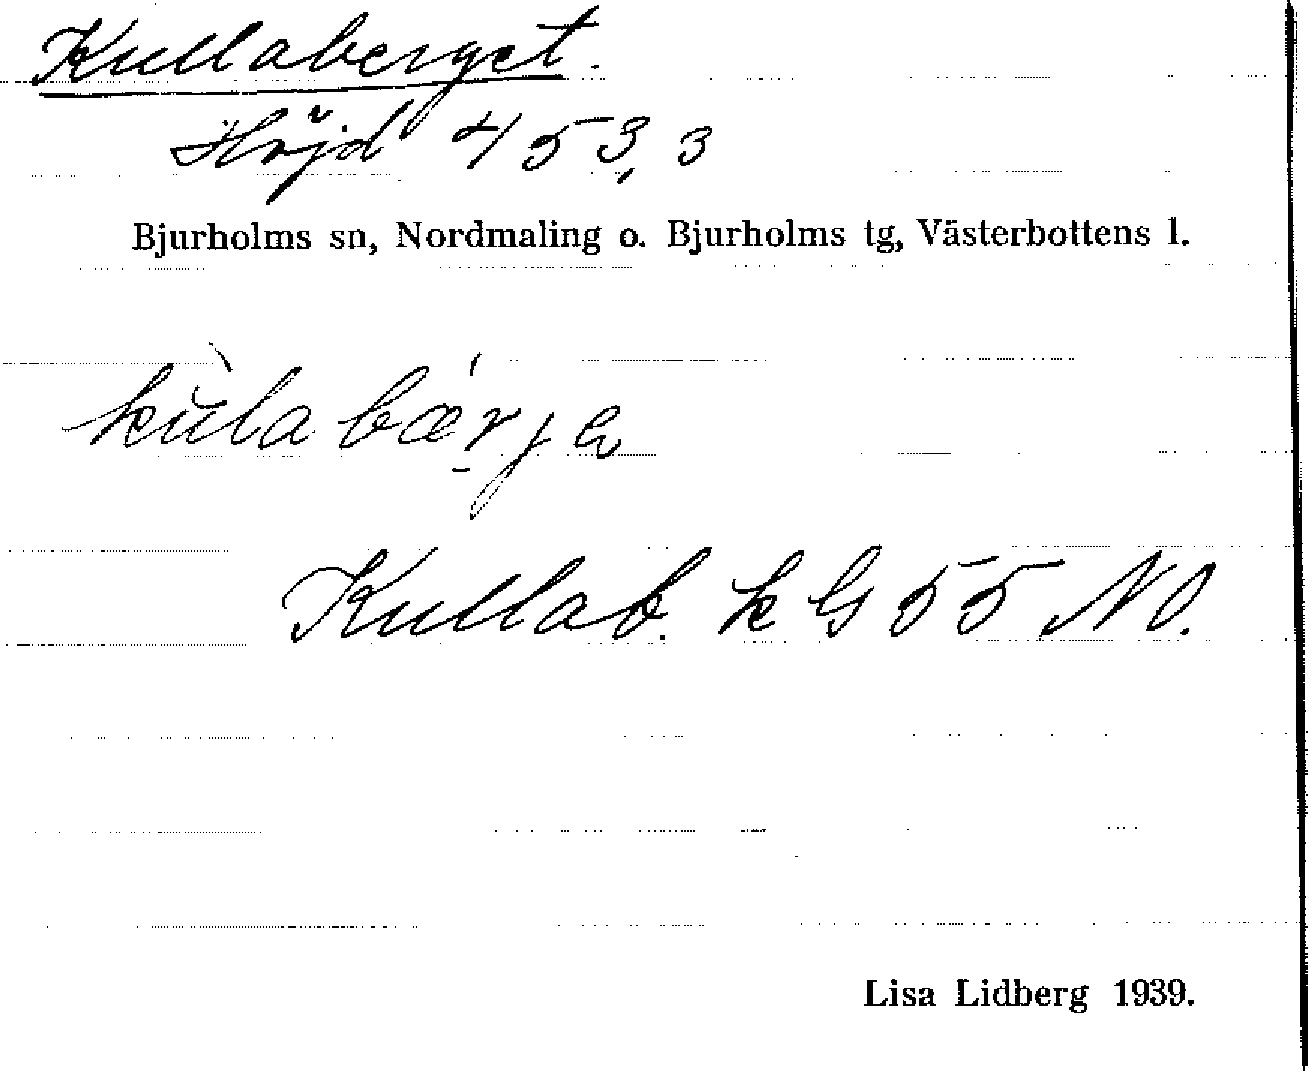 Kullaberget.
Höjd 453,3
Bjurholms sn, Nordmaling o. Bjurholms tg, Västerbottens l.
Kullab. k G 55 NO.
Lisa Lidberg 1939.